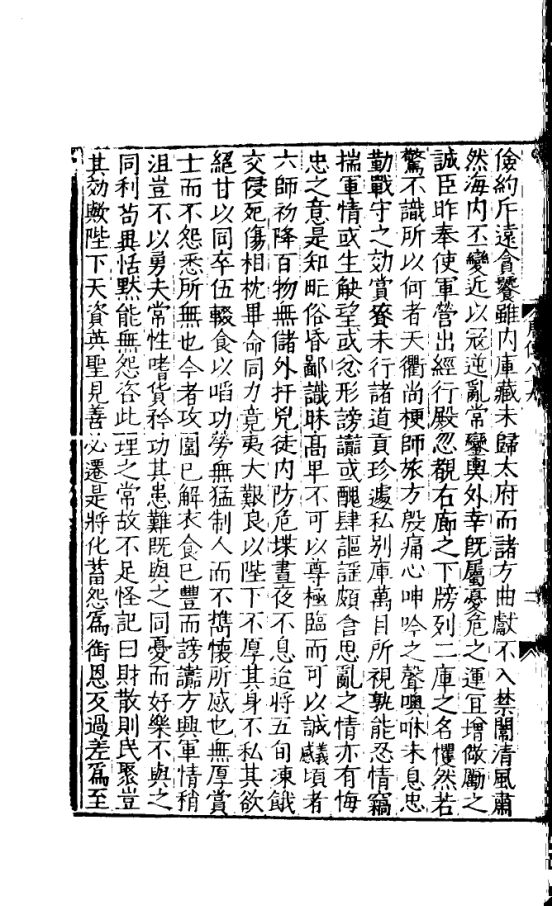 儉約斥遠貪饕雖内庫藏未歸太府而諸方曲獻不入禁闈清風肅
然海内丕變近以冦逆亂常鑾輿外幸旣屬憂危之運宜增儆勵之
誠臣昨奉使軍營出經行殿忽覩右廊之下牓列二庫之名懼然若
驚不識所以何者天衢尚梗師旅方殷痛心呻吟之聲噢咻未息忠
勤戰守之効賞賚未行諸道貢珍遽私别庫萬目所視孰能忍情竊
揣軍情或生觖望或忿形謗讟或醜肆謳謡頗含思亂之情亦有悔
忠之意是知甿俗昏鄙識昧髙卑不可以尊極臨而可以誠義感頃者
六師初降百物無儲外扞兇徒内防危堞晝夜不息迨將五旬凍餓
交侵死傷相枕畢命同力竟夷大艱良以陛下不厚其身不私其欲
絕甘以同卒伍輟食以㗖功勞無猛制人而不擕懷所感也無厚賞
士而不怨悉所無也今者攻圍已解衣食已豐而謗讟方興軍情稍
沮豈不以勇夫常性嗜貨矜功其患難旣與之同憂而好樂不與之
同利茍異恬默能無怨咨此理之常故不足怪記曰財散則民聚豈
其効歟陛下天資英聖見善必遷是將化蓄怨爲銜恩反過差爲至